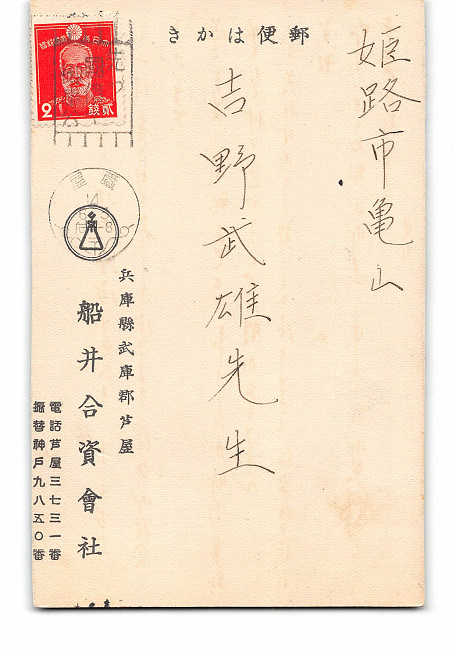 郵便はかき
姫路市亀山
吉野武雄先生
兵庫縣武庫郡芦屋
船井合資會社
電話芦屋三七三一番
振替神戸九八五〇番
大日本帝國郵便
2
貳錢
蘆屋
14